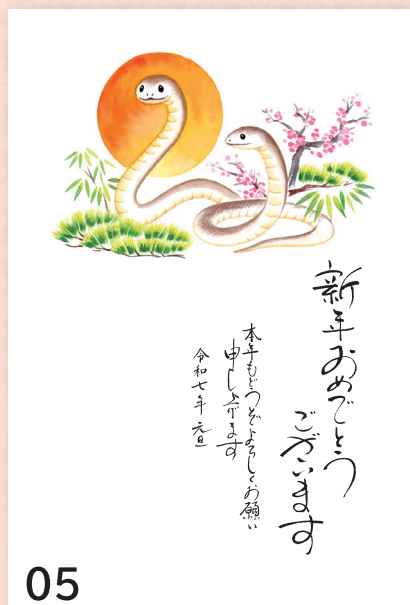 新年おめでとう
ございます
本年もどうぞよろしくお願い
申し上げます
令和七年 元旦
05